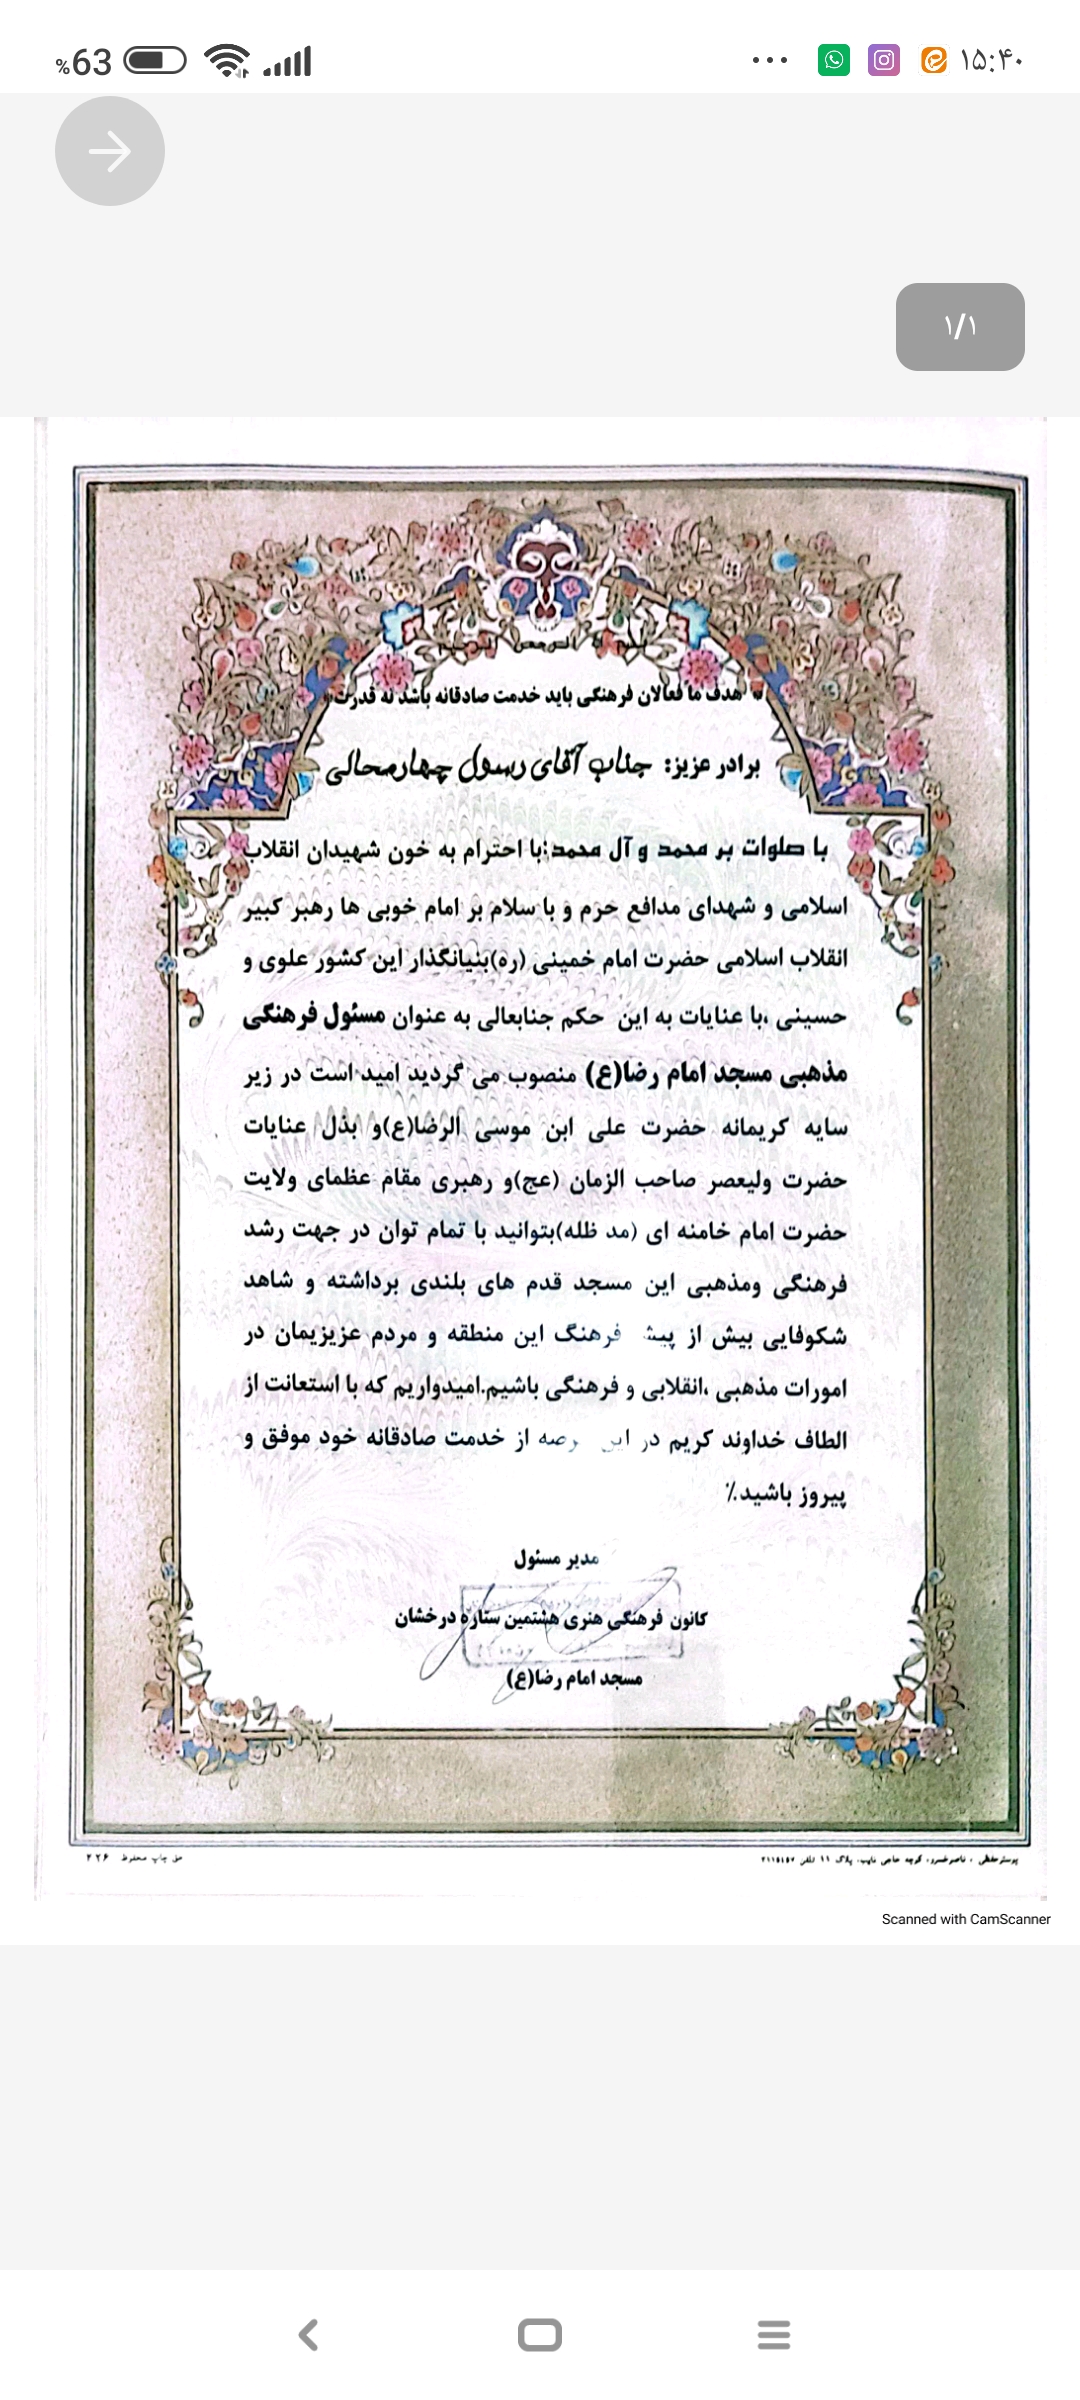 %63
۱۵:۴۰
۱/۱
بسم الله الرحمن الرحیم
« هدف ما فعالان فرهنگی باید خدمت صادقانه باشد نه قدرت»
برادر عزیز: جناب آقای رسول چهارمحالی
با صلوات بر محمد و آل محمد؛با احترام به خون شهیدان انقلاب
اسلامی و شهدای مدافع حرم و با سلام بر امام خوبی ها رهبر کبیر
انقلاب اسلامی حضرت امام خمینی (ره)بنیانگذار این کشور علوی و
حسینی ،با عنایات به این حکم جنابعالی به عنوان مسئول فرهنگی
مذهبی مسجد امام رضا(ع) منصوب می گردید امید است در زیر
سایه کریمانه حضرت علی ابن موسی الرضا(ع)و بذل عنایات
حضرت ولیعصر صاحب الزمان (عج)و رهبری مقام عظمای ولایت
حضرت امام خامنه ای (مد ظله)بتوانید با تمام توان در جهت رشد
فرهنگی ومذهبی این مسجد قدم های بلندی برداشته و شاهد
شکوفایی بیش از پیش فرهنگ این منطقه و مردم عزیزیمان در
امورات مذهبی ،انقلابی و فرهنگی باشیم.امیدواریم که با استعانت از
الطاف خداوند کریم در این عرصه از خدمت صادقانه خود موفق و
پیروز باشید.٪
مدیر مسئول
کانون فرهنگی هنری هشتمین ستاره درخشان
مسجد امام رضا(ع)
پوستر حافظی ، ناصرخسرو، کوچه حاجی نایب، پلاک ۱۱ تلفن ۳۱۱۵۱۵۷
حق چاپ محفوظ ۲۲۶
Scanned with CamScanner